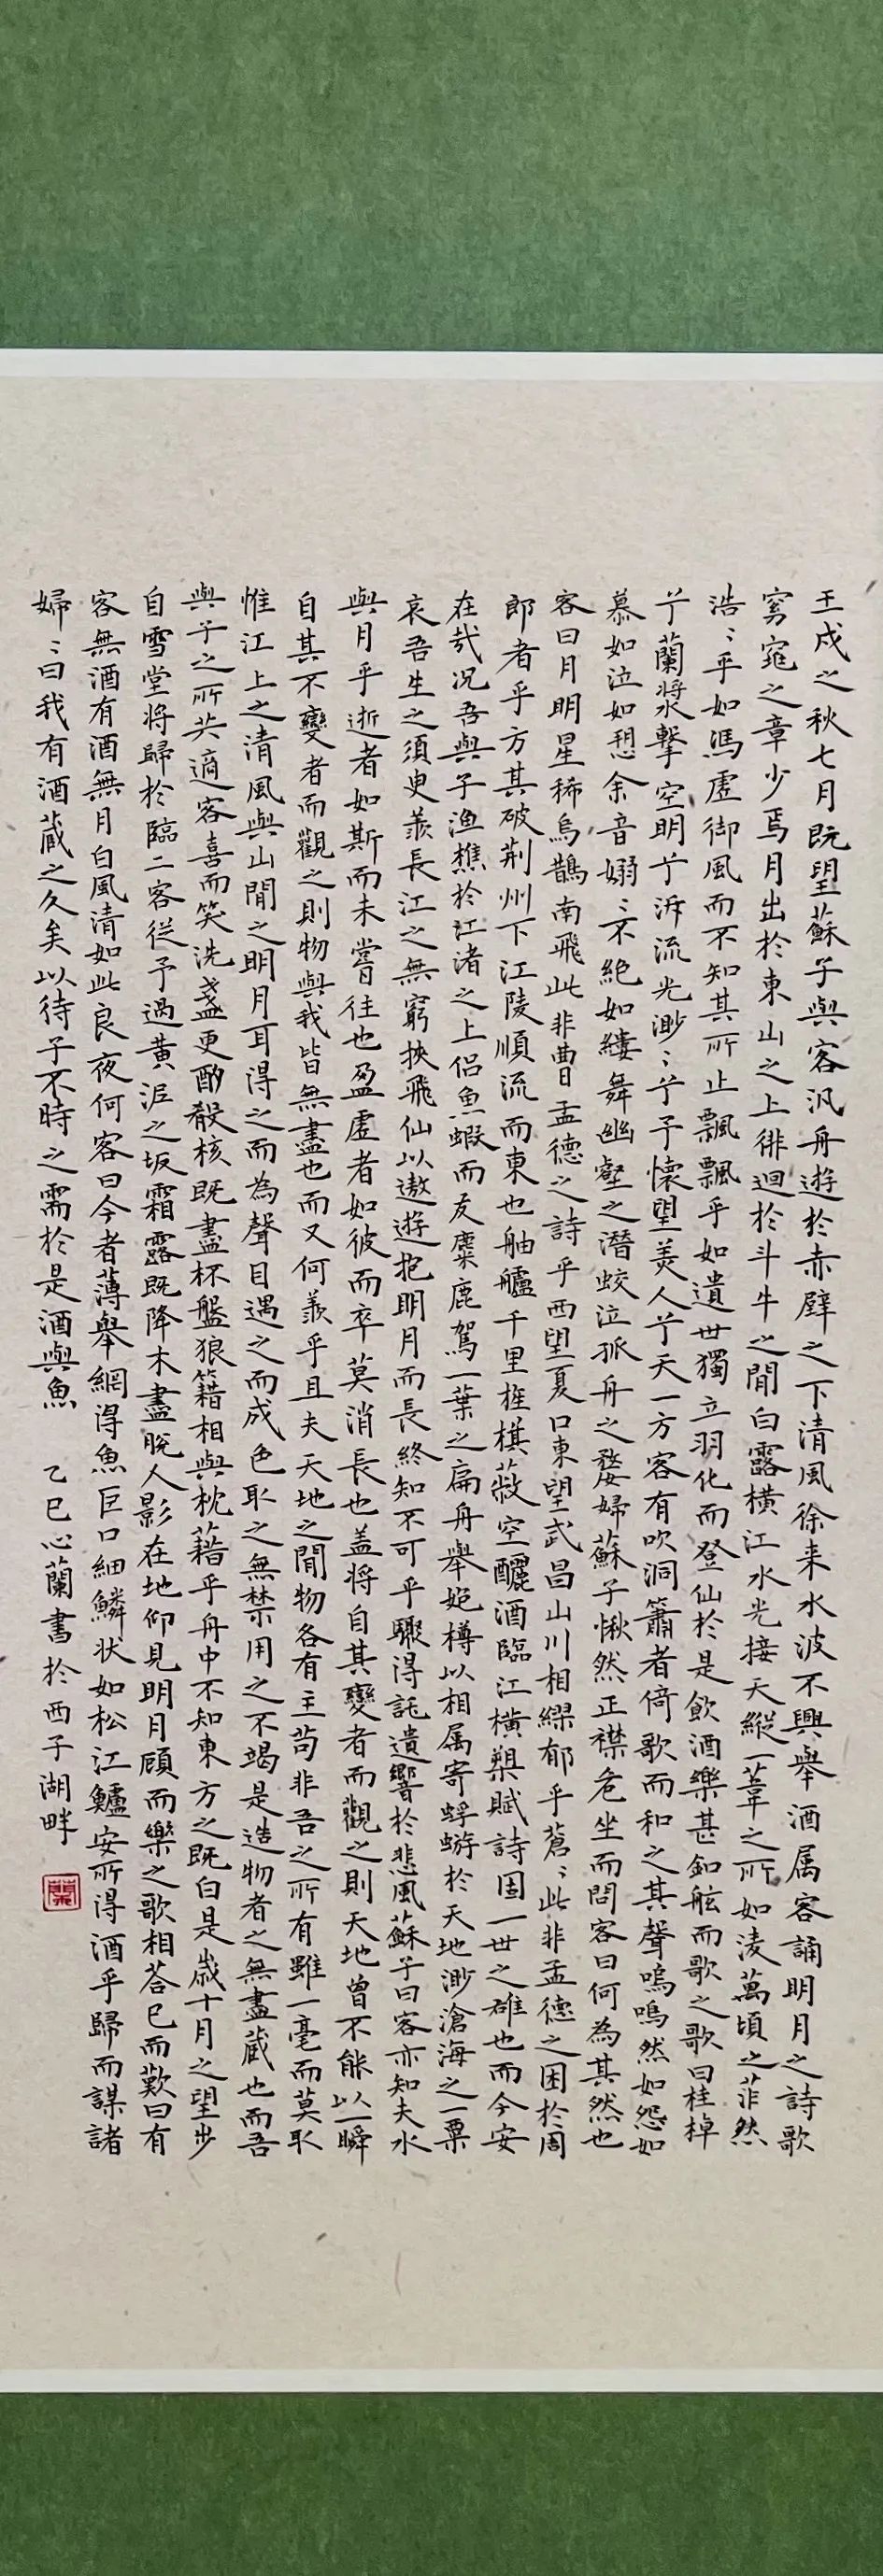 壬戌之秋七月既望蘇子與客汎舟遊於赤壁之下清風徐來水波不興舉酒属客誦明月之詩歌
窈窕之章少焉月出於東山之上徘迴於斗牛之閒白露橫江水光接天縱一葦之所如淩萬頃之茫然
浩〻乎如馮虛御風而不知其所止飄飄乎如遺世獨立羽化而登仙於是飲酒樂甚釦舷而歌之歌曰桂棹
兮蘭漿擊空明兮泝流光渺〻兮予懷望美人兮天一方客有吹洞簫者倚歌而和之其聲嗚嗚然如怨如
慕如泣如愬余音嫋〻不絕如縷舞幽壑之潛蛟泣孤舟之嫠婦蘇子愀然正襟危坐而問客曰何為其然也
客曰月明星稀烏鵲南飛此非曹孟德之詩乎西望夏口東望武昌山川相繆郁乎蒼〻此非孟德之困於周
郎者乎方其破荆州下江陵順流而東也舳艫千里旌棋蔽空釃酒臨江橫槊賦詩固一世之雄也而今安
在哉况吾與子漁樵於江渚之上侶魚蝦而友麋鹿駕一葉之扁舟舉匏樽以相属寄蜉蝣於天地渺滄海之一粟
哀吾生之須臾羨長江之無窮挾飛仙以遨遊抱明月而長終知不可乎驟得託遺響於悲風蘇子曰客亦知夫水
與月乎逝者如斯而未嘗往也盈虛者如彼而卒莫消長也盖将自其變者而觀之則天地曾不能以一瞬
自其不變者而觀之則物與我皆無盡也而又何羨乎且夫天地之閒物各有主茍非吾之所有雖一毫而莫取
惟江上之清風與山閒之明月耳得之而為聲目遇之而成色取之無禁用之不竭是造物者之無盡藏也而吾
與子之所共適客喜而笑洗盞更酌殽核既盡杯盤狼籍相與枕藉乎舟中不知東方之既白是歲十月之望步
自雪堂将歸於臨二客從予過黃泥之坂霜露既降木盡脫人影在地仰見明月顧而樂之歌相荅已而歎曰有
客無酒有酒無月白風清如此良夜何客曰今者薄舉網得魚巨口細鱗狀如松江鱸安所得酒乎歸而謀諸
婦〻曰我有酒藏之久矣以待子不時之需於是酒與魚 乙巳心蘭書於西子湖畔